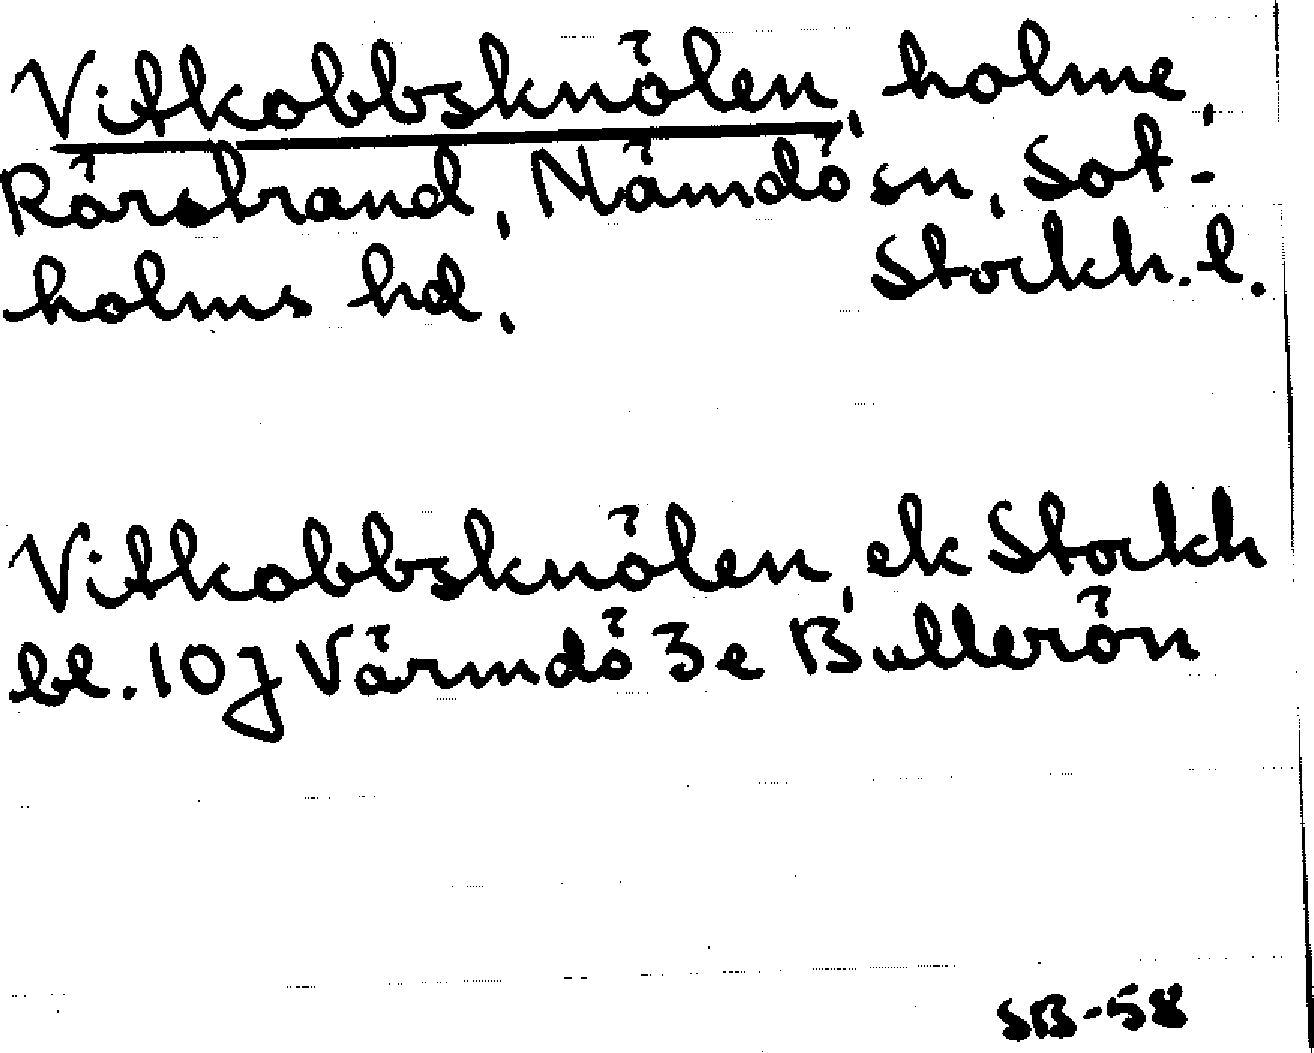 Vitkobbsknölen, holme,
Rörstrand, Nämdö sn, Sot-
holms hd. Stockh. l.
Vitkobbsknölen, ek Stockh
bl. 10J Värmdö 3e Bullerön
SB-58